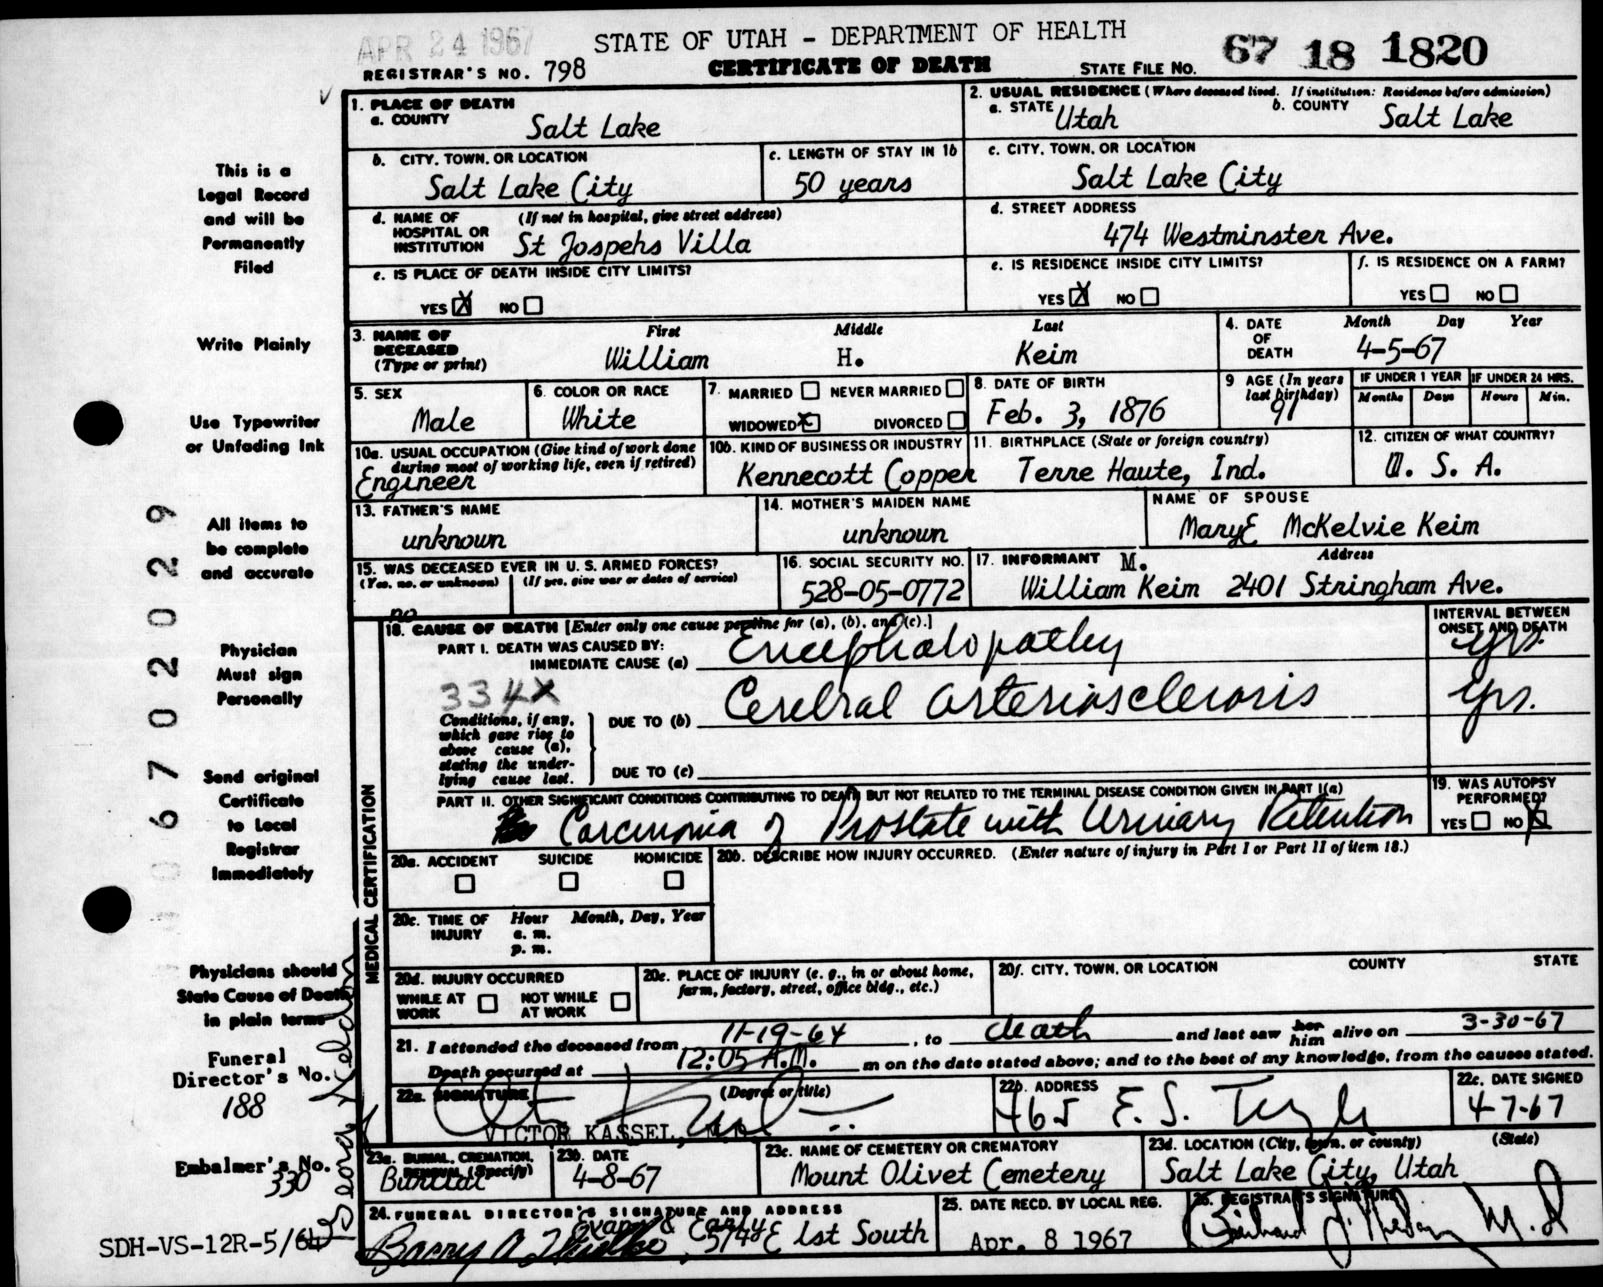 APR 24 1967
STATE OF UTAH - DEPARTMENT OF HEALTH
67 18 1820
REGISTRAR'S NO. 798
CERTIFICATE OF DEATH
STATE FILE NO.
1. PLACE OF DEATH
a. COUNTY
Salt Lake
2. USUAL RESIDENCE (Where deceased lived. If institution: Residence before admission)
a. STATE
Utah
b. COUNTY
Salt Lake
b. CITY, TOWN, OR LOCATION
Salt Lake City
c. LENGTH OF STAY IN 1b
50 years
c. CITY, TOWN, OR LOCATION
Salt Lake City
d. NAME OF HOSPITAL OR INSTITUTION
(If not in hospital, give street address)
St Jospehs Villa
d. STREET ADDRESS
474 Westminster Ave.
e. IS PLACE OF DEATH INSIDE CITY LIMITS?
YES X NO
e. IS RESIDENCE INSIDE CITY LIMITS?
YES X NO
f. IS RESIDENCE ON A FARM?
YES NO
3. NAME OF DECEASED
(Type or print)
First Middle Last
William H. Keim
4. DATE OF DEATH
Month Day Year
4-5-67
5. SEX
Male
6. COLOR OR RACE
White
7. MARRIED NEVER MARRIED
WIDOWED X DIVORCED
8. DATE OF BIRTH
Feb. 3, 1876
9 AGE (In years last birthday)
91
IF UNDER 1 YEAR
Months Days
IF UNDER 24 HRS.
Hours Min.
10a. USUAL OCCUPATION (Give kind of work done during most of working life, even if retired)
Engineer
10b. KIND OF BUSINESS OR INDUSTRY
Kennecott Copper
11. BIRTHPLACE (State or foreign country)
Terre Haute, Ind.
12. CITIZEN OF WHAT COUNTRY?
U. S. A.
13. FATHER'S NAME
unknown
14. MOTHER'S MAIDEN NAME
unknown
NAME OF SPOUSE
MaryE McKelvie Keim
15. WAS DECEASED EVER IN U. S. ARMED FORCES?
(Yes, no, or unknown) (If yes, give war or dates of service)
no
16. SOCIAL SECURITY NO.
528-05-0772
17. INFORMANT
Address
M.
William Keim 2401 Stringham Ave.
18. CAUSE OF DEATH [Enter only one cause per line for (a), (b), and (c).]
PART I. DEATH WAS CAUSED BY:
IMMEDIATE CAUSE (a) Encephalopathy
334X
DUE TO (b) Cerebral arteriosclerosis
DUE TO (c)
Conditions, if any, which gave rise to above cause (a), stating the underlying cause last.
INTERVAL BETWEEN ONSET AND DEATH
yrs.
yrs.
PART II. OTHER SIGNIFICANT CONDITIONS CONTRIBUTING TO DEATH BUT NOT RELATED TO THE TERMINAL DISEASE CONDITION GIVEN IN PART I(a)
Carcinoma of Prostate with Urinary Retention
19. WAS AUTOPSY PERFORMED?
YES NO X
MEDICAL CERTIFICATION
20a. ACCIDENT SUICIDE HOMICIDE
20b. DESCRIBE HOW INJURY OCCURRED. (Enter nature of injury in Part I or Part II of item 18.)
20c. TIME OF INJURY
Hour Month, Day, Year
a. m.
p. m.
20d. INJURY OCCURRED
WHILE AT WORK NOT WHILE AT WORK
20e. PLACE OF INJURY (e. g., in or about home, farm, factory, street, office bldg., etc.)
20f. CITY, TOWN, OR LOCATION COUNTY STATE
21. I attended the deceased from 11-19-64, to death and last saw her him alive on 3-30-67
Death occurred at 12:05 A.M. m on the date stated above; and to the best of my knowledge, from the causes stated.
22a. SIGNATURE (Degree or title)
VICTOR KASSEL, M.D.
22b. ADDRESS
465 E. S. Temple
22c. DATE SIGNED
4-7-67
23a. BURIAL, CREMATION, REMOVAL (Specify)
Burial
23b. DATE
4-8-67
23c. NAME OF CEMETERY OR CREMATORY
Mount Olivet Cemetery
23d. LOCATION (City, town, or county) (State)
Salt Lake City, Utah
24. FUNERAL DIRECTOR'S SIGNATURE AND ADDRESS
Evans & Early
574 E 1st South
25. DATE RECD. BY LOCAL REG.
Apr. 8 1967
26. REGISTRAR'S SIGNATURE
M.D
This is a
Legal Record
and will be
Permanently
Filed
Write Plainly
Use Typewriter
or Unfading Ink
All items to
be complete
and accurate
Physician
Must sign
Personally
Send original
Certificate
to Local
Registrar
Immediately
Physicians should
State Cause of Death
in plain terms
Funeral
Director's No.
188
Embalmer's No.
330
SDH-VS-12R-5/64
06702029